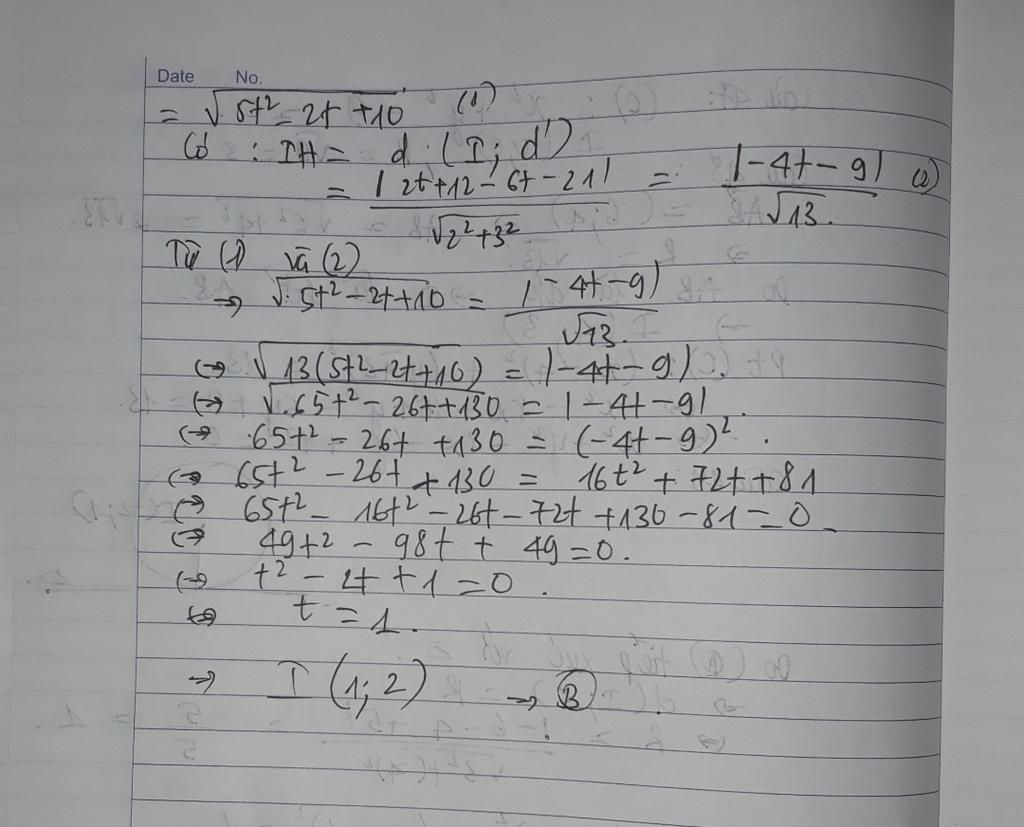 Date No.
= √(5t² - 2t + 10) (1)
Có : IH = d (I; d')
= |2t+12-6t-21| / √(2²+3²) = |-4t-9| / √13. (2)
Từ (1) và (2)
→ √(5t²-2t+10) = |-4t-9| / √13.
↔ √(13(5t²-2t+10)) = |-4t-9|.
↔ √(65t²-26t+130) = |-4t-9|.
↔ 65t² - 26t + 130 = (-4t-9)².
↔ 65t² - 26t + 130 = 16t² + 72t + 81
↔ 65t² - 16t² - 26t - 72t + 130 - 81 = 0
↔ 49t² - 98t + 49 = 0.
↔ t² - 2t + 1 = 0.
↔ t = 1.
→ I (1; 2) → B